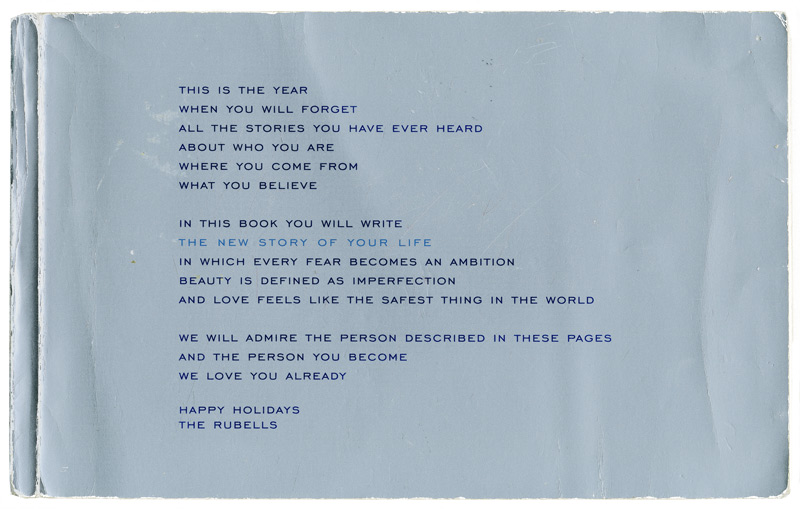 THIS IS THE YEAR
WHEN YOU WILL FORGET
ALL THE STORIES YOU HAVE EVER HEARD
ABOUT WHO YOU ARE
WHERE YOU COME FROM
WHAT YOU BELIEVE
IN THIS BOOK YOU WILL WRITE
THE NEW STORY OF YOUR LIFE
IN WHICH EVERY FEAR BECOMES AN AMBITION
BEAUTY IS DEFINED AS IMPERFECTION
AND LOVE FEELS LIKE THE SAFEST THING IN THE WORLD
WE WILL ADMIRE THE PERSON DESCRIBED IN THESE PAGES
AND THE PERSON YOU BECOME
WE LOVE YOU ALREADY
HAPPY HOLIDAYS
THE RUBELLS